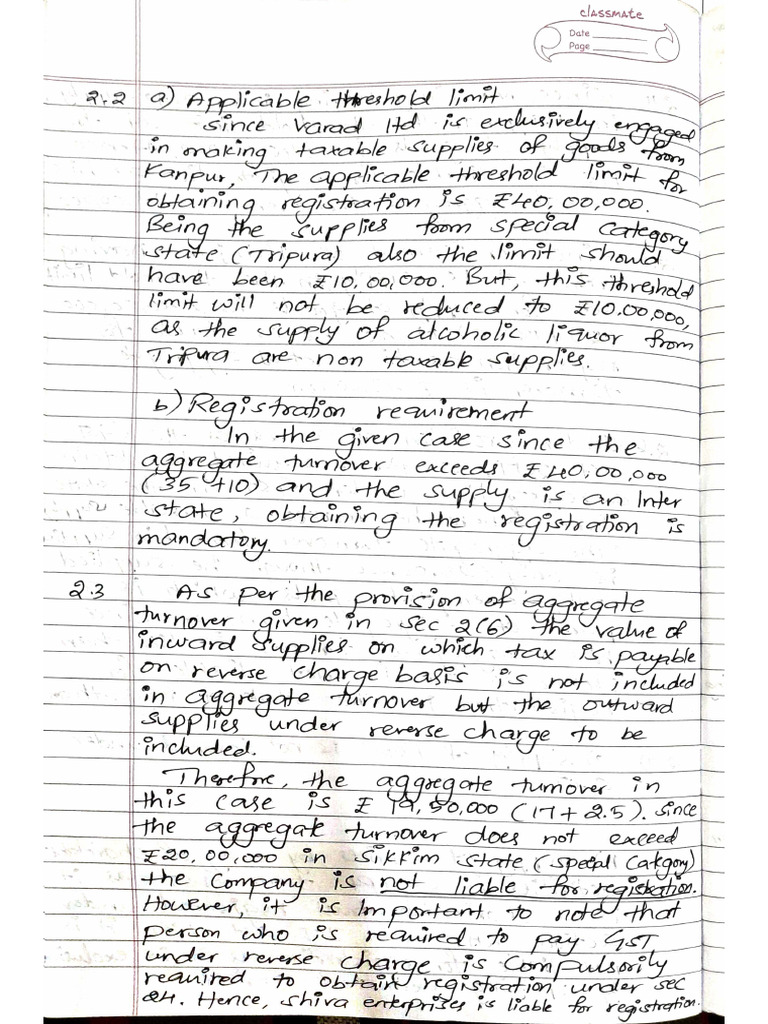 classmate
Date
Page
2.2 a) Applicable threshold limit
since varad ltd is exclusively engaged
in making taxable supplies of goods from
Kanpur, The applicable threshold limit for
obtaining registration is ₹40,00,000.
Being the supplies from special category
state (Tripura) also the limit should
have been ₹10,00,000. But, this threshold
limit will not be reduced to ₹10.00,000,
as the supply of alcoholic liquor from
Tripura are non taxable supplies.
b) Registration requirement
In the given case since the
aggregate turnover exceeds ₹40,00,000
(35 +10) and the supply is an Inter
state, obtaining the registration is
mandatory.
2.3 As per the provision of aggregate
turnover given in sec 2(6) the value of
inward supplies on which tax is payable
on reverse charge basis is not included
in aggregate turnover but the outward
supplies under reverse charge to be
included.
Therefore, the aggregate turnover in
this case is ₹ 19,50,000 (17+2.5). since
the aggregate turnover does not exceed
₹20,00,000 in sikkim state (special Category)
the Company is not liable for registration.
However, it is Important to note that
person who is required to pay GST
under reverse charge is Compulsorily
required to obtain registration under sec
24. Hence, shiva enterprises is liable for registration.